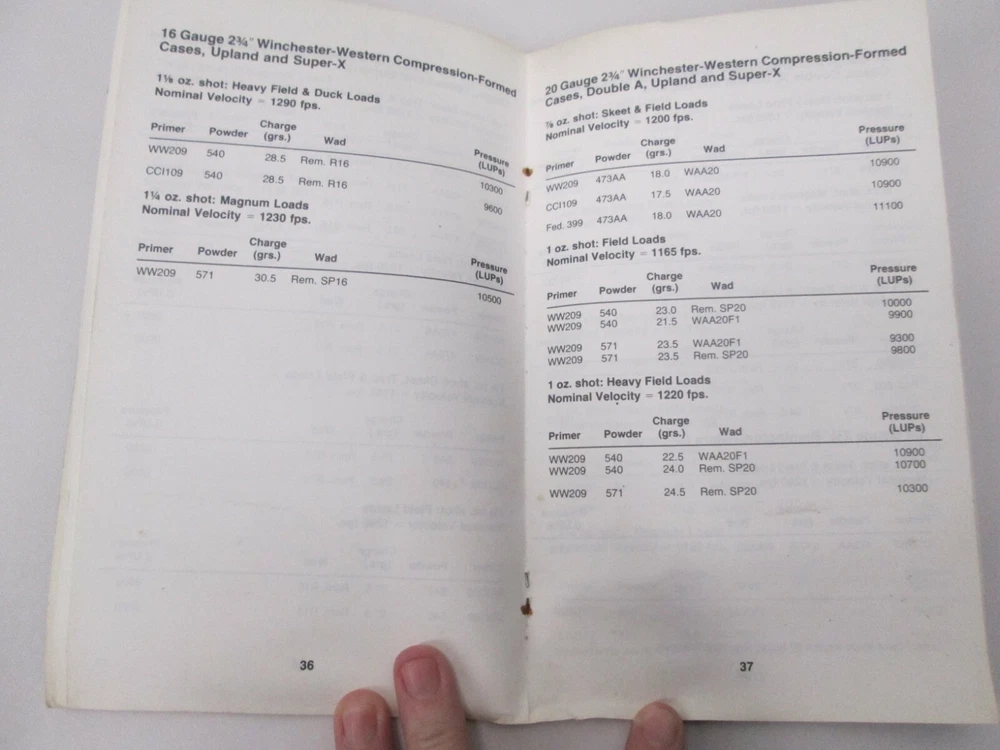 16 Gauge 2¾" Winchester-Western Compression-Formed
Cases, Upland and Super-X
1⅛ oz. shot: Heavy Field & Duck Loads
Nominal Velocity = 1290 fps.
Primer Powder Charge (grs.) Wad Pressure (LUPs)
WW209 540 28.5 Rem. R16 10300
CCI109 540 28.5 Rem. R16 9600
1¼ oz. shot: Magnum Loads
Nominal Velocity = 1230 fps.
Primer Powder Charge (grs.) Wad Pressure (LUPs)
WW209 571 30.5 Rem. SP16 10500
36
20 Gauge 2¾" Winchester-Western Compression-Formed
Cases, Double A, Upland and Super-X
⅞ oz. shot: Skeet & Field Loads
Nominal Velocity = 1200 fps.
Primer Powder Charge (grs.) Wad Pressure (LUPs)
WW209 473AA 18.0 WAA20 10900
CCI109 473AA 17.5 WAA20 10900
Fed. 399 473AA 18.0 WAA20 11100
1 oz. shot: Field Loads
Nominal Velocity = 1165 fps.
Primer Powder Charge (grs.) Wad Pressure (LUPs)
WW209 540 23.0 Rem. SP20 10000
WW209 540 21.5 WAA20F1 9900
WW209 571 23.5 WAA20F1 9300
WW209 571 23.5 Rem. SP20 9800
1 oz. shot: Heavy Field Loads
Nominal Velocity = 1220 fps.
Primer Powder Charge (grs.) Wad Pressure (LUPs)
WW209 540 22.5 WAA20F1 10900
WW209 540 24.0 Rem. SP20 10700
WW209 571 24.5 Rem. SP20 10300
37